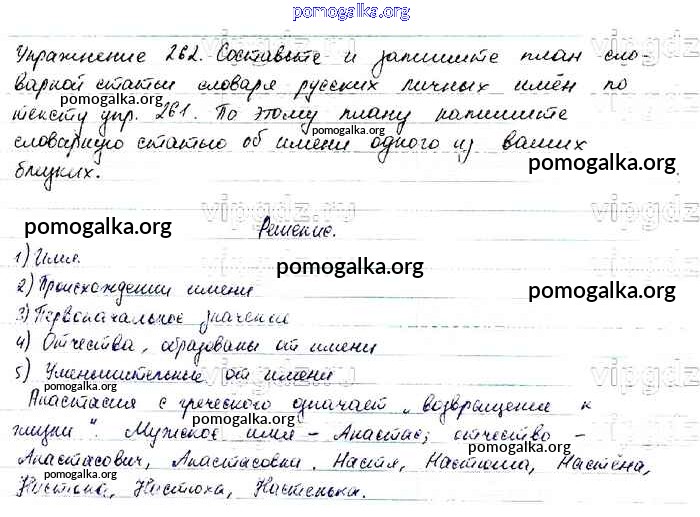 pomogalka.org
Упражнение 262. Составьте и запишите план сло-
варной статьи словаря русских личных имён по
pomogalka.org
тексту упр. 261. По этому плану напишите
pomogalka.org
словарную статью об имени одного из ваших
pomogalka.org
близких.
vipgdz.ru
pomogalka.org
Решение.
1) Имя.
pomogalka.org
2) Происхождении имени
pomogalka.org
3) Первоначальное значение
4) Отчества, образованы от имени
5) Уменьшительные от имени
vipgdz
pomogalka.org
Анастасия с греческого означает „возвращение к
pomogalka.org
жизни". Мужское имя – Анастас; отчество –
Анастасович, Анастасовна. Настя, Настюша, Настёна,
pomogalka.org
Настюха, Настенька.